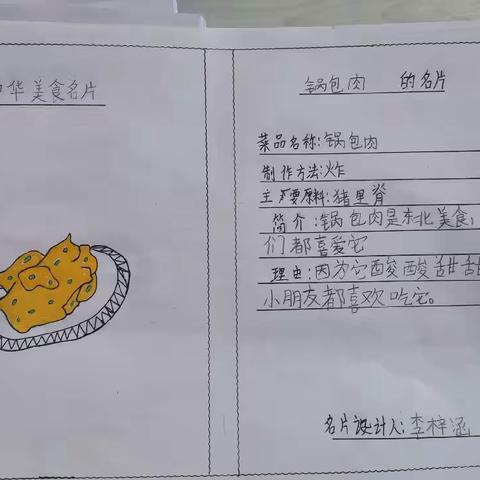 华美食名片
锅包肉 的名片
菜品名称:锅包肉
制作方法:炸
主要原料:猪里脊
简介:锅包肉是东北美食,
们都喜爱它
理由:因为它酸酸甜甜
小朋友都喜欢吃它。
名片设计人:李梓涵